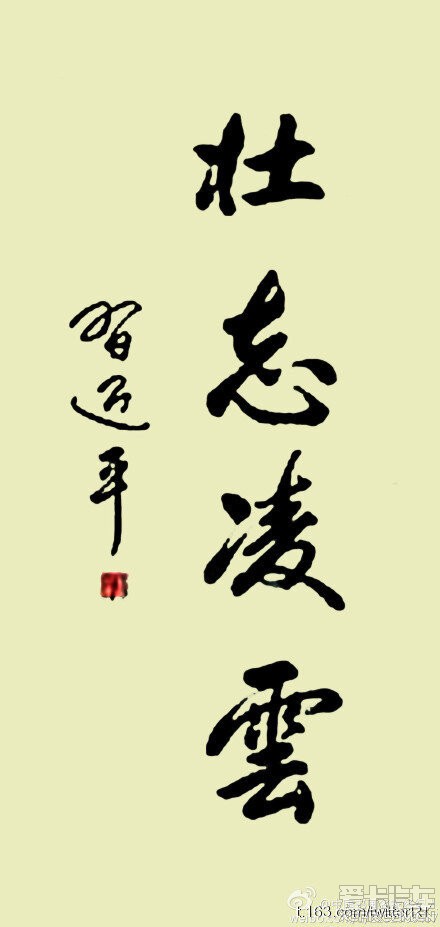 壮志凌雲
習近平
爱卡汽车
t.163.com/twitter121